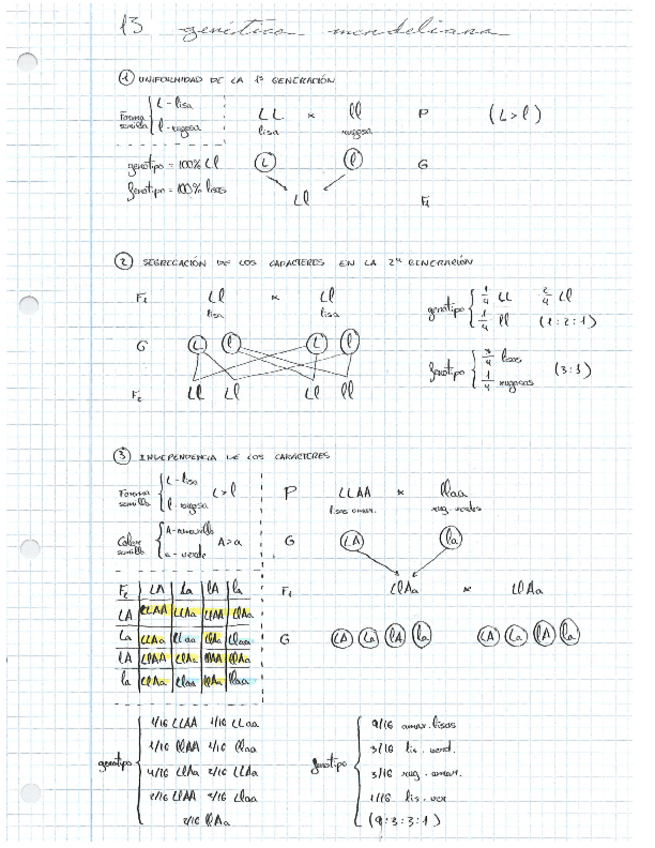 13 genética mendeliana
① UNIFORMIDAD DE LA 1ª GENERACIÓN
Forma semilla { L - lisa
l - rugosa
LL × ll P (L>l)
lisa rugosa
genotipo = 100% Ll L l G
fenotipo = 100% lisas Ll F₁
② SEGREGACIÓN DE LOS CARACTERES EN LA 2ª GENERACIÓN
F₁ Ll × Ll
lisa lisa
genotipo { 1/4 LL 2/4 Ll
1/4 ll (1:2:1)
G L l L l
fenotipo { 3/4 lisas
1/4 rugosas (3:1)
F₂ LL Ll Ll ll
③ INDEPENDENCIA DE LOS CARACTERES
Forma semilla { L - lisa
l - rugosa L>l
P LLAA × llaa
lisas amar. rug. verdes
Color semilla { A - amarillo
a - verde A>a
G LA la
F₁ LlAa × LlAa
F₂ LA La lA la
LA LLAA LLAa LlAA LlAa
La LLAa LLaa LlAa Llaa
lA LlAA LlAa llAA llAa
la LlAa Llaa llAa llaa
G LA La lA la LA La lA la
genotipo { 1/16 LLAA 1/16 LLaa
1/16 llAA 1/16 llaa
4/16 LlAa 2/16 LLAa
2/16 LlAA 2/16 Llaa
2/16 llAa
fenotipo { 9/16 amar. lisas
3/16 lis. verd.
3/16 rug. amar.
1/16 lis. ver
(9:3:3:1)